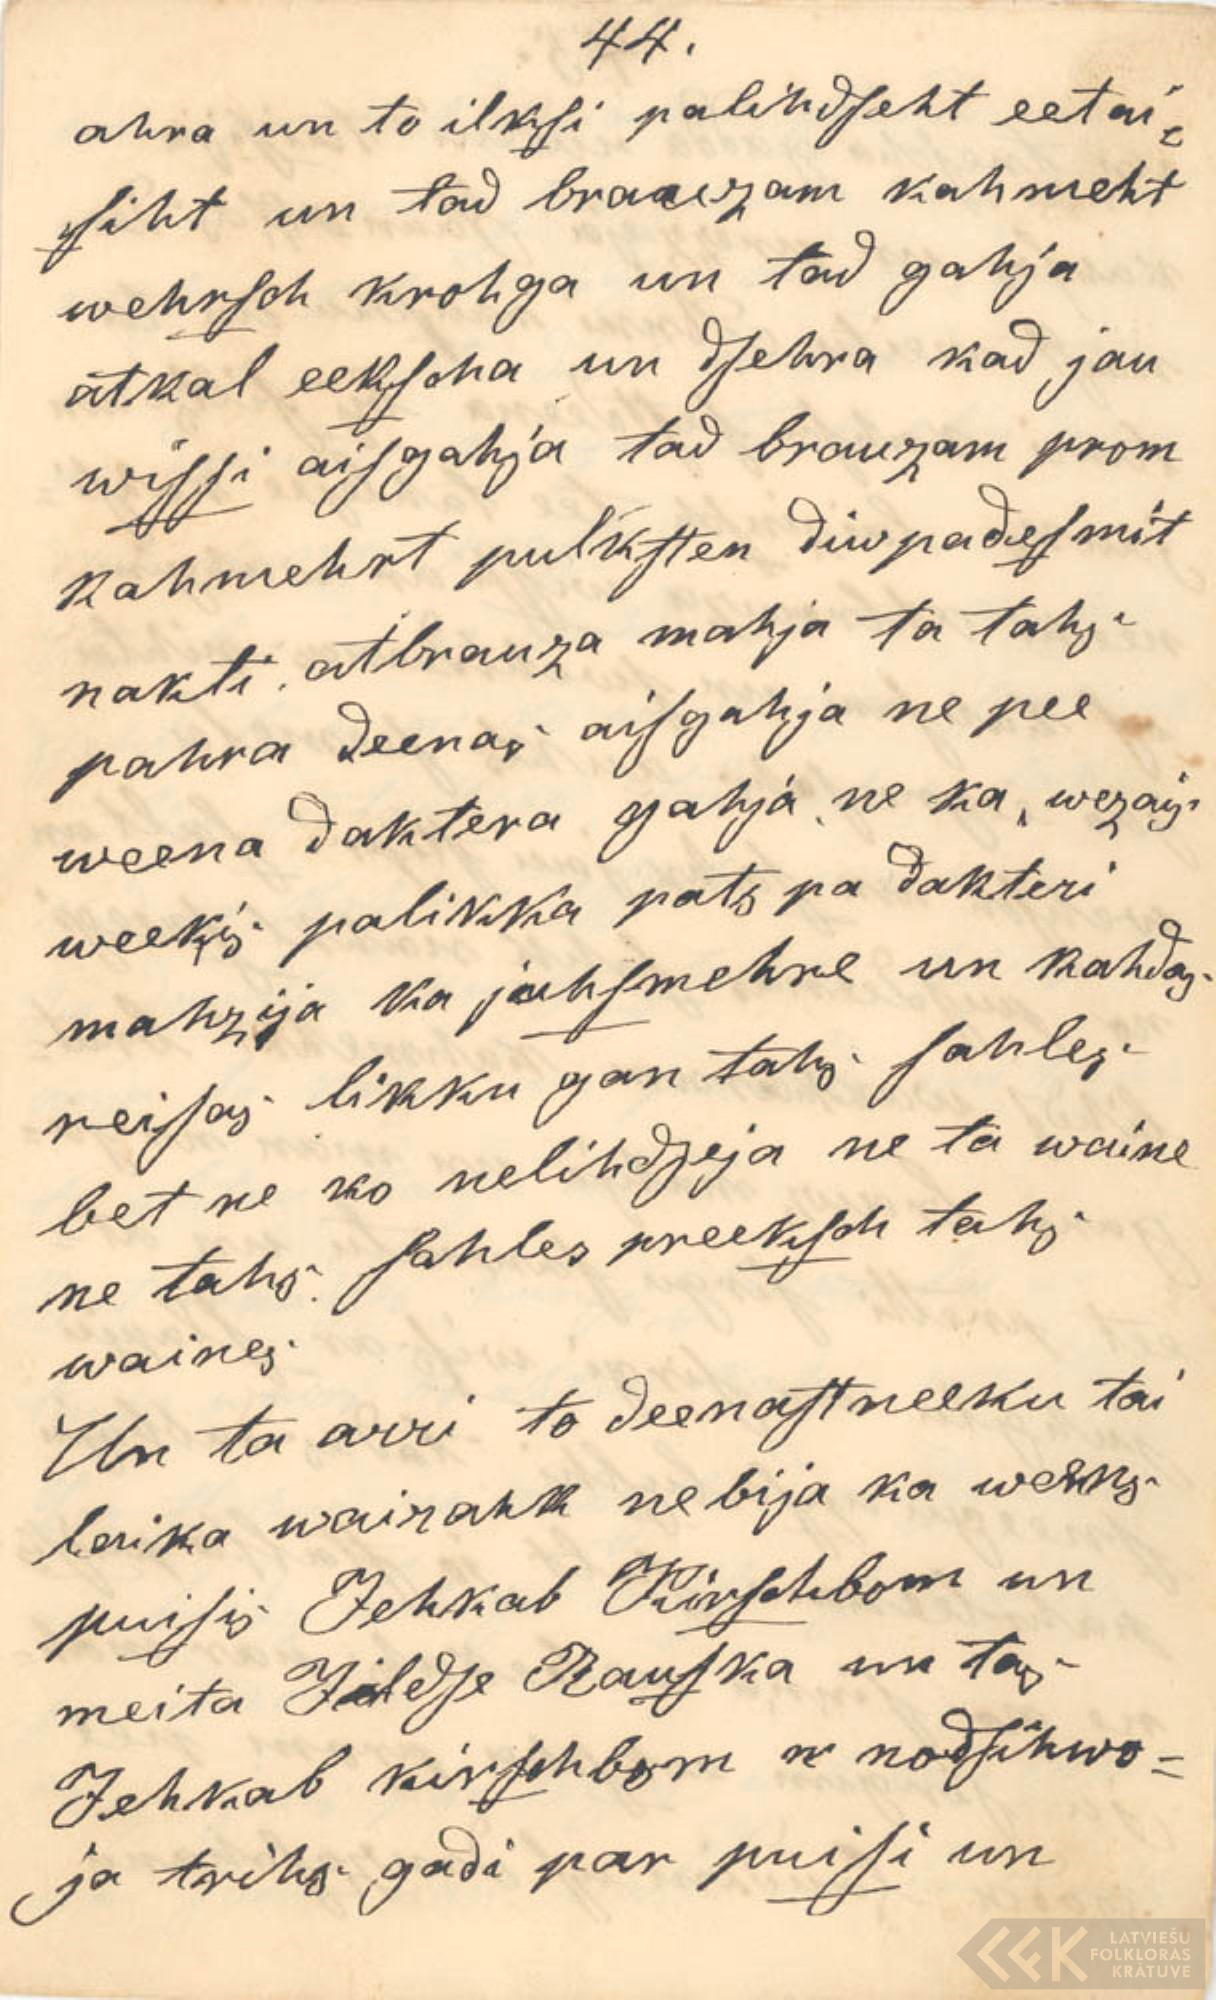 44.
ahra un to ilksi palihdseht eetai=
siht un tad brauzam kahmeht
wehrsch krohga un tad gahja
atkal eekscha un dsehra kad jau
wissi aisgahja tad brauzam prom
kahmehrt pulksten diwpadesmit
nakti. atbrauza mahja ta tahs
pahra deenas aisgahja ne pee
weena daktera gahja ne ka, wezais
weekis palikka pats pa dakteri
mahzija ka jahsmehre un kahdas
reisas likku gan tahs sahles
bet ne ko nelihdzeja ne ta waine
ne tahs sahles preeksch tahs
waines
Un ta arri to deenastneeku tai
laika wairahk nebija ka weens
puisis Jehkab Kirschbom un
meita Jildse Rauska un tas
Jehkab kirschbom nodsihwo=
ja trihs gadi par puisi un
LATVIEŠU
FOLKLORAS
KRĀTUVE